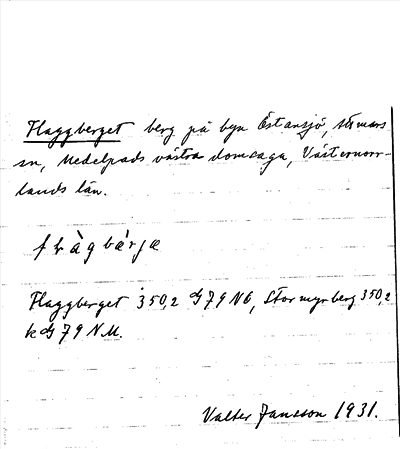 Flaggberget berg på byn Östansjö,
sn, Medelpads västra domsaga, Västernorr-
lands län.
flàgbàrjæ
Flaggberget 350,2 Stormyrberg 350,2
Valter Jansson 1931.